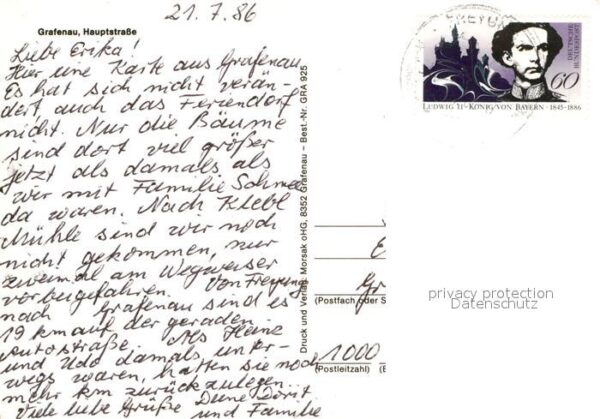 21.7.86
Grafenau, Hauptstraße
Liebe Erika!
Hier eine Karte aus Grafenau.
Es hat sich nicht verän-
dert, auch das Feriendorf
nicht. Nur die Bäume
sind dort viel größer
jetzt als damals, als
wir mit Familie
da waren. Nach
Mühle sind wir noch
nicht gekommen, nur
zweimal am Wegweiser
vorbeigefahren. Von Freyung
nach Grafenau sind es
19 km auf der geraden
Autostraße. Als Heine
und Udo damals unter-
wegs waren, hatten sie noch
mehr km zurückzulegen.
Viele liebe Grüße Deine Dorit
und Familie
Druck und Verlag: Morsak oHG, 8352 Grafenau – Best.-Nr. GRA 925
DEUTSCHE
BUNDESPOST
60
LUDWIG II·KÖNIG VON BAYERN·1845-1886
(Postfach oder S
1000
(Postleitzahl)
privacy protection
Datenschutz